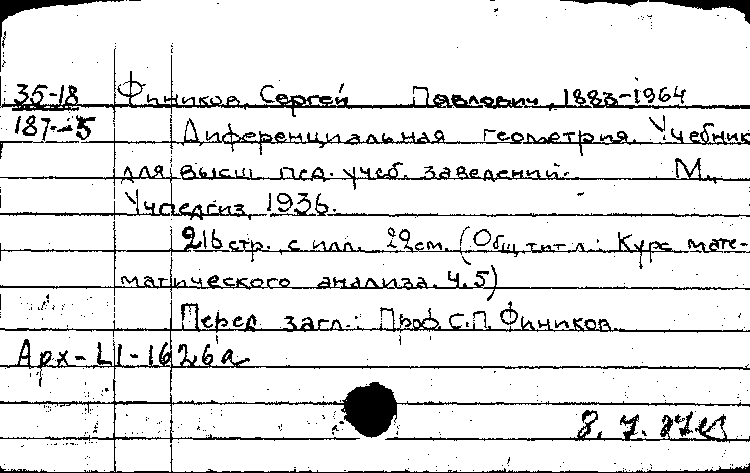 35-18 Фиников, Сергей Павлович, 1883-1964
187-5 Диференциальная геометрия. Учебник
для высш. пед. учеб. заведений. М.,
Учпедгиз, 1936.
216 стр. с илл. 22 см. (Общ. тит. л.: Курс мате-
матического анализа. Ч. 5)
Перед загл.: Проф. С.П. Фиников
Арх-L1-1626а